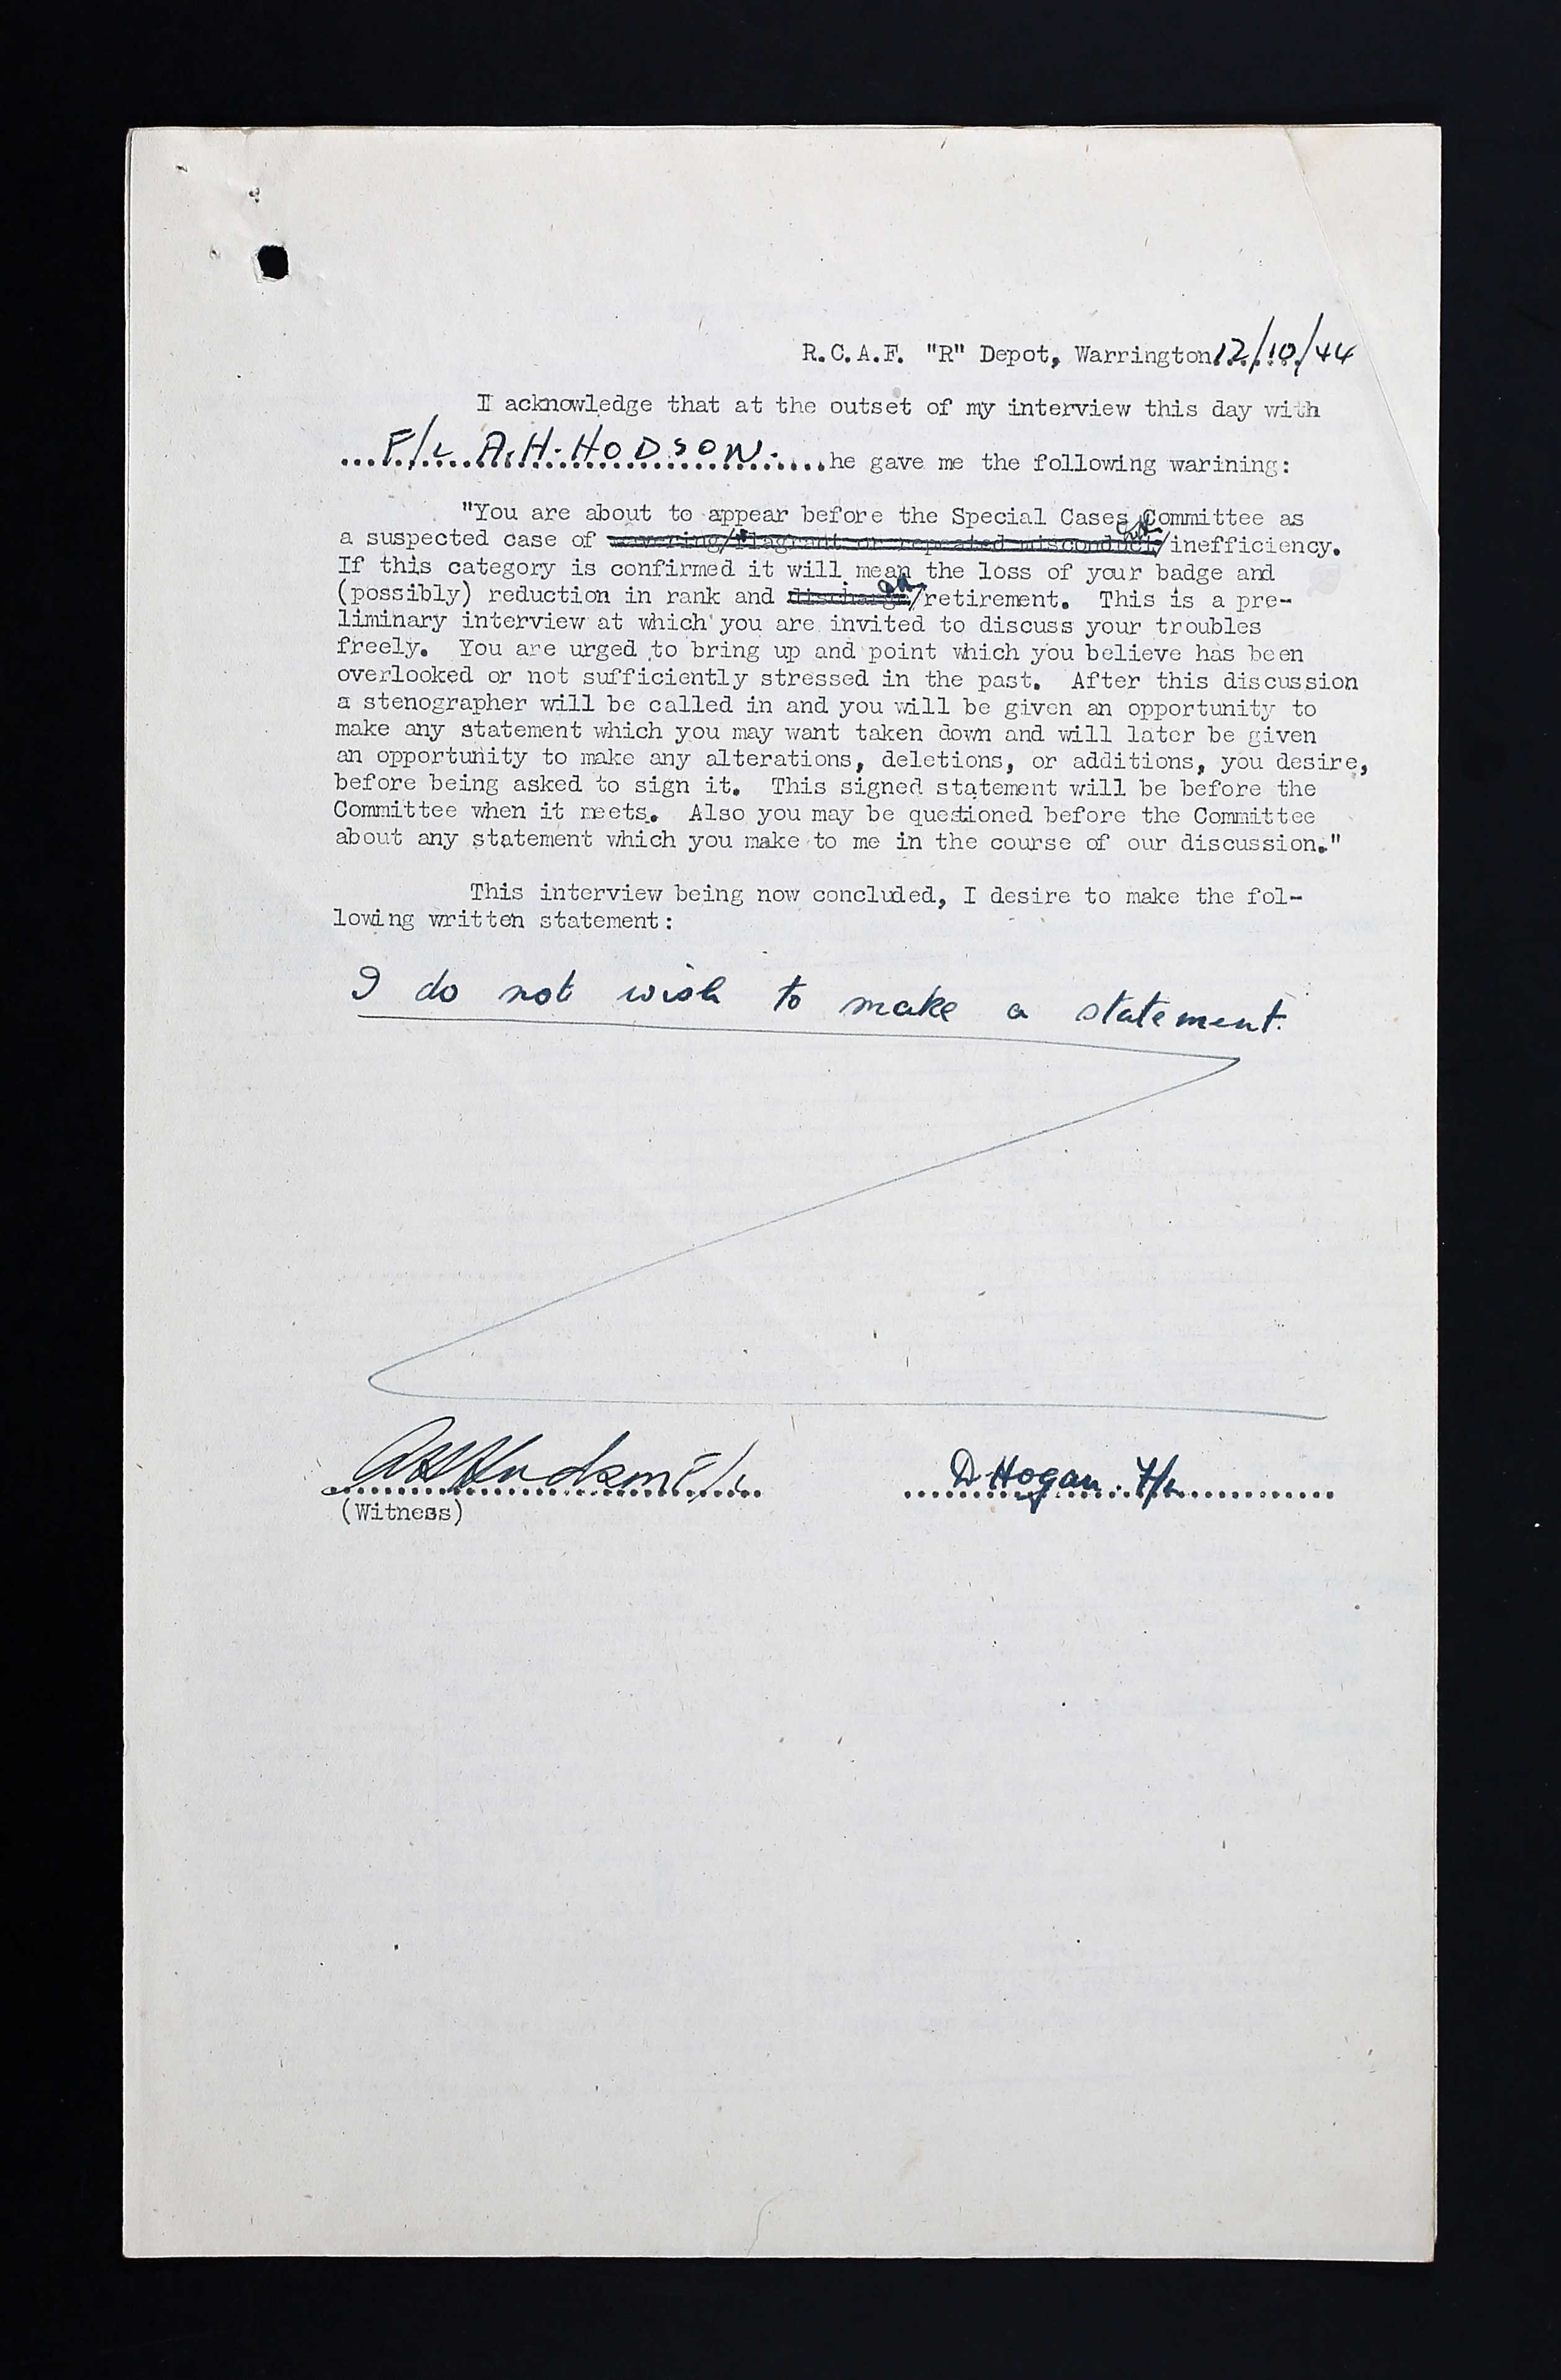 R.C.A.F. "R" Depot, Warrington 12/10/44
I acknowledge that at the outset of my interview this day with
...F/L A.H. HODSON.....he gave me the following warining:
"You are about to appear before the Special Cases Committee as
a suspected case of wavering/flagrant or repeated misconduct/inefficiency.
If this category is confirmed it will mean the loss of your badge and
(possibly) reduction in rank and discharge/retirement. This is a pre-
liminary interview at which you are invited to discuss your troubles
freely. You are urged to bring up and point which you believe has been
overlooked or not sufficiently stressed in the past. After this discussion
a stenographer will be called in and you will be given an opportunity to
make any statement which you may want taken down and will later be given
an opportunity to make any alterations, deletions, or additions, you desire,
before being asked to sign it. This signed statement will be before the
Committee when it meets. Also you may be questioned before the Committee
about any statement which you make to me in the course of our discussion."
This interview being now concluded, I desire to make the fol-
lowing written statement:
I do not wish to make a statement.
F/L
D Hogan. F/L
(Witness)